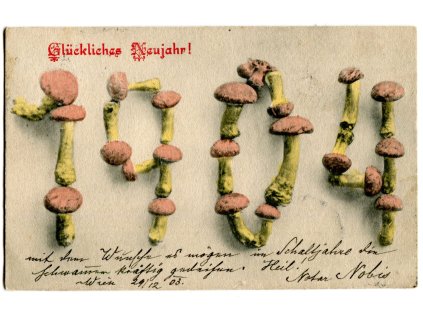 Glückliches Neujahr!
1904
mit dem Wunsche es mögen im Schaltjahre die
Schwammer kräftig gedeihen. Heil!
Wien 29/12 03. Notar Nobis